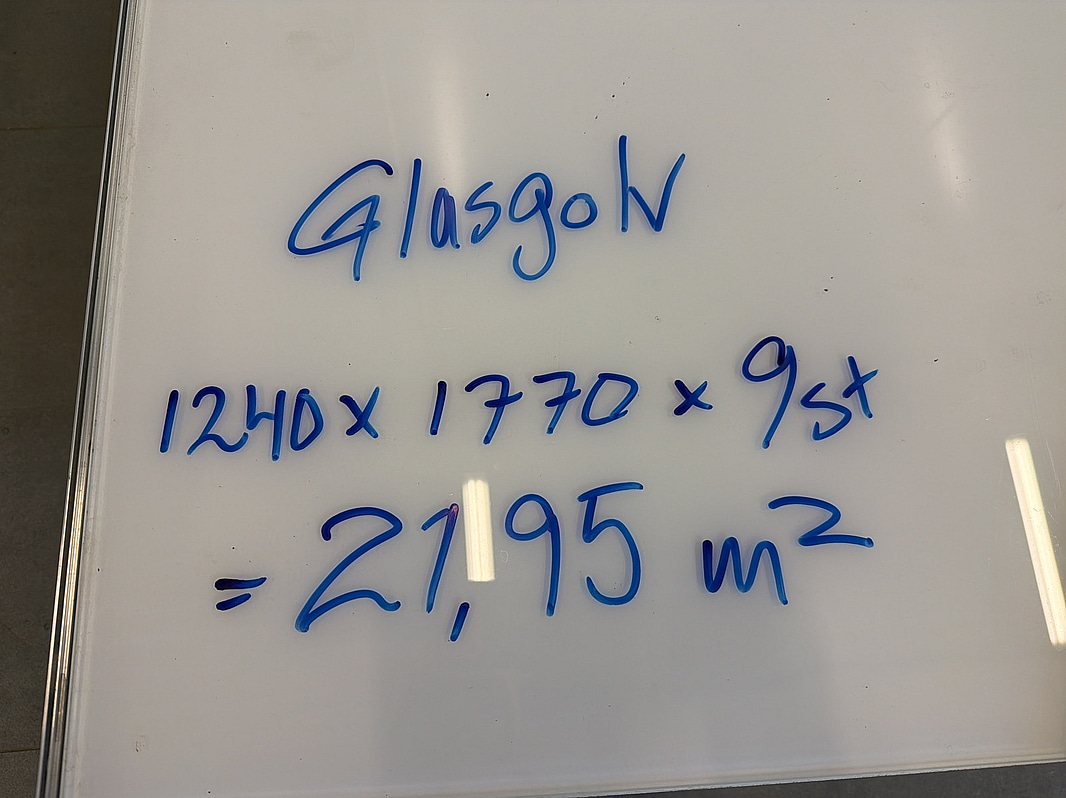 Glasgow
1240 x 1770 x 9st
= 21,95 m²